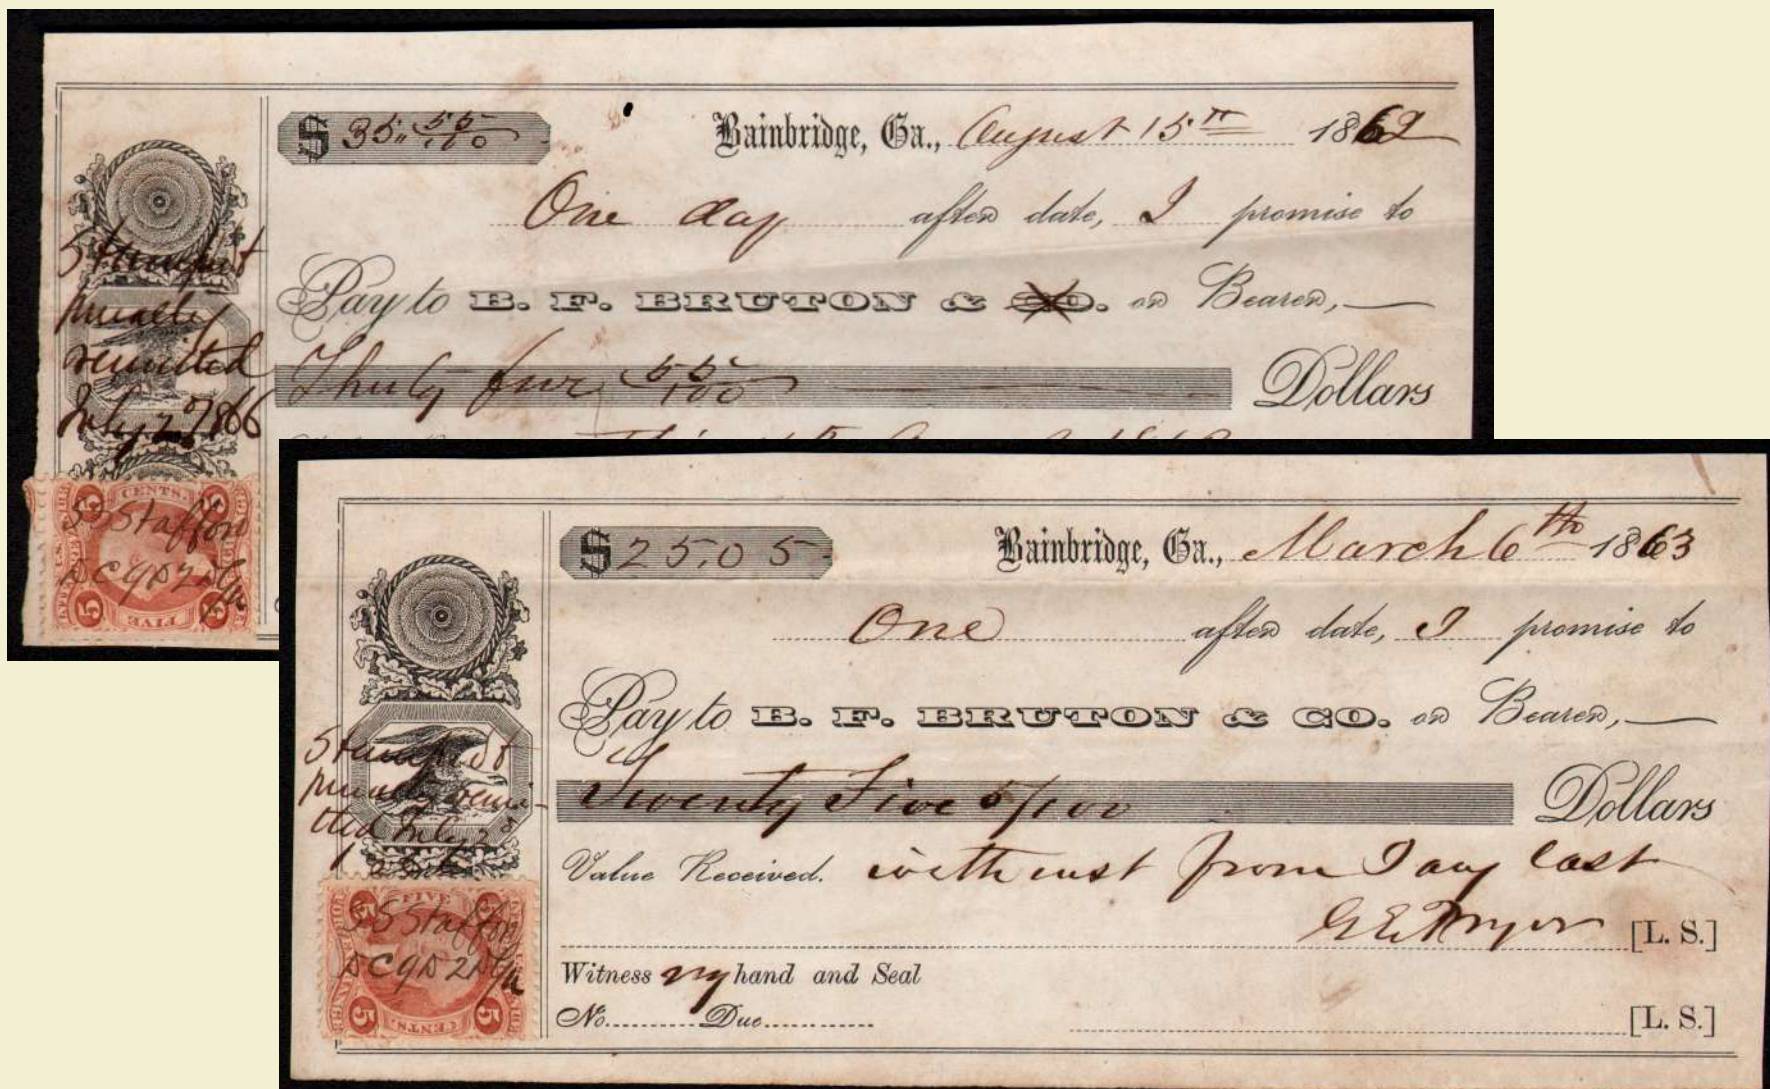 $ 35,, 55/100 Bainbridge, Ga., August 15th 1862
One day after date, I promise to
Pay to B. F. BRUTON & CO. or Bearer,
Thirty five 55/100 Dollars
Stamp'd &
penalty
remitted
July 2d 1866
5 CENTS. 5
S S Stafford
D C 9 D 2 D Ga
5 FIVE 5
$25.05 Bainbridge, Ga., March 6th 1863
One after date, I promise to
Pay to B. F. BRUTON & CO. or Bearer,
Twenty Five 5/100 Dollars
Value Received. with inst from Jany last
[L. S.]
Witness my hand and Seal
No. Due [L. S.]
Stamp'd &
penalty remi-
tted July 2d
5 FIVE 5
S S Stafford
D C 9 D 2 D Ga
5 CENTS. 5